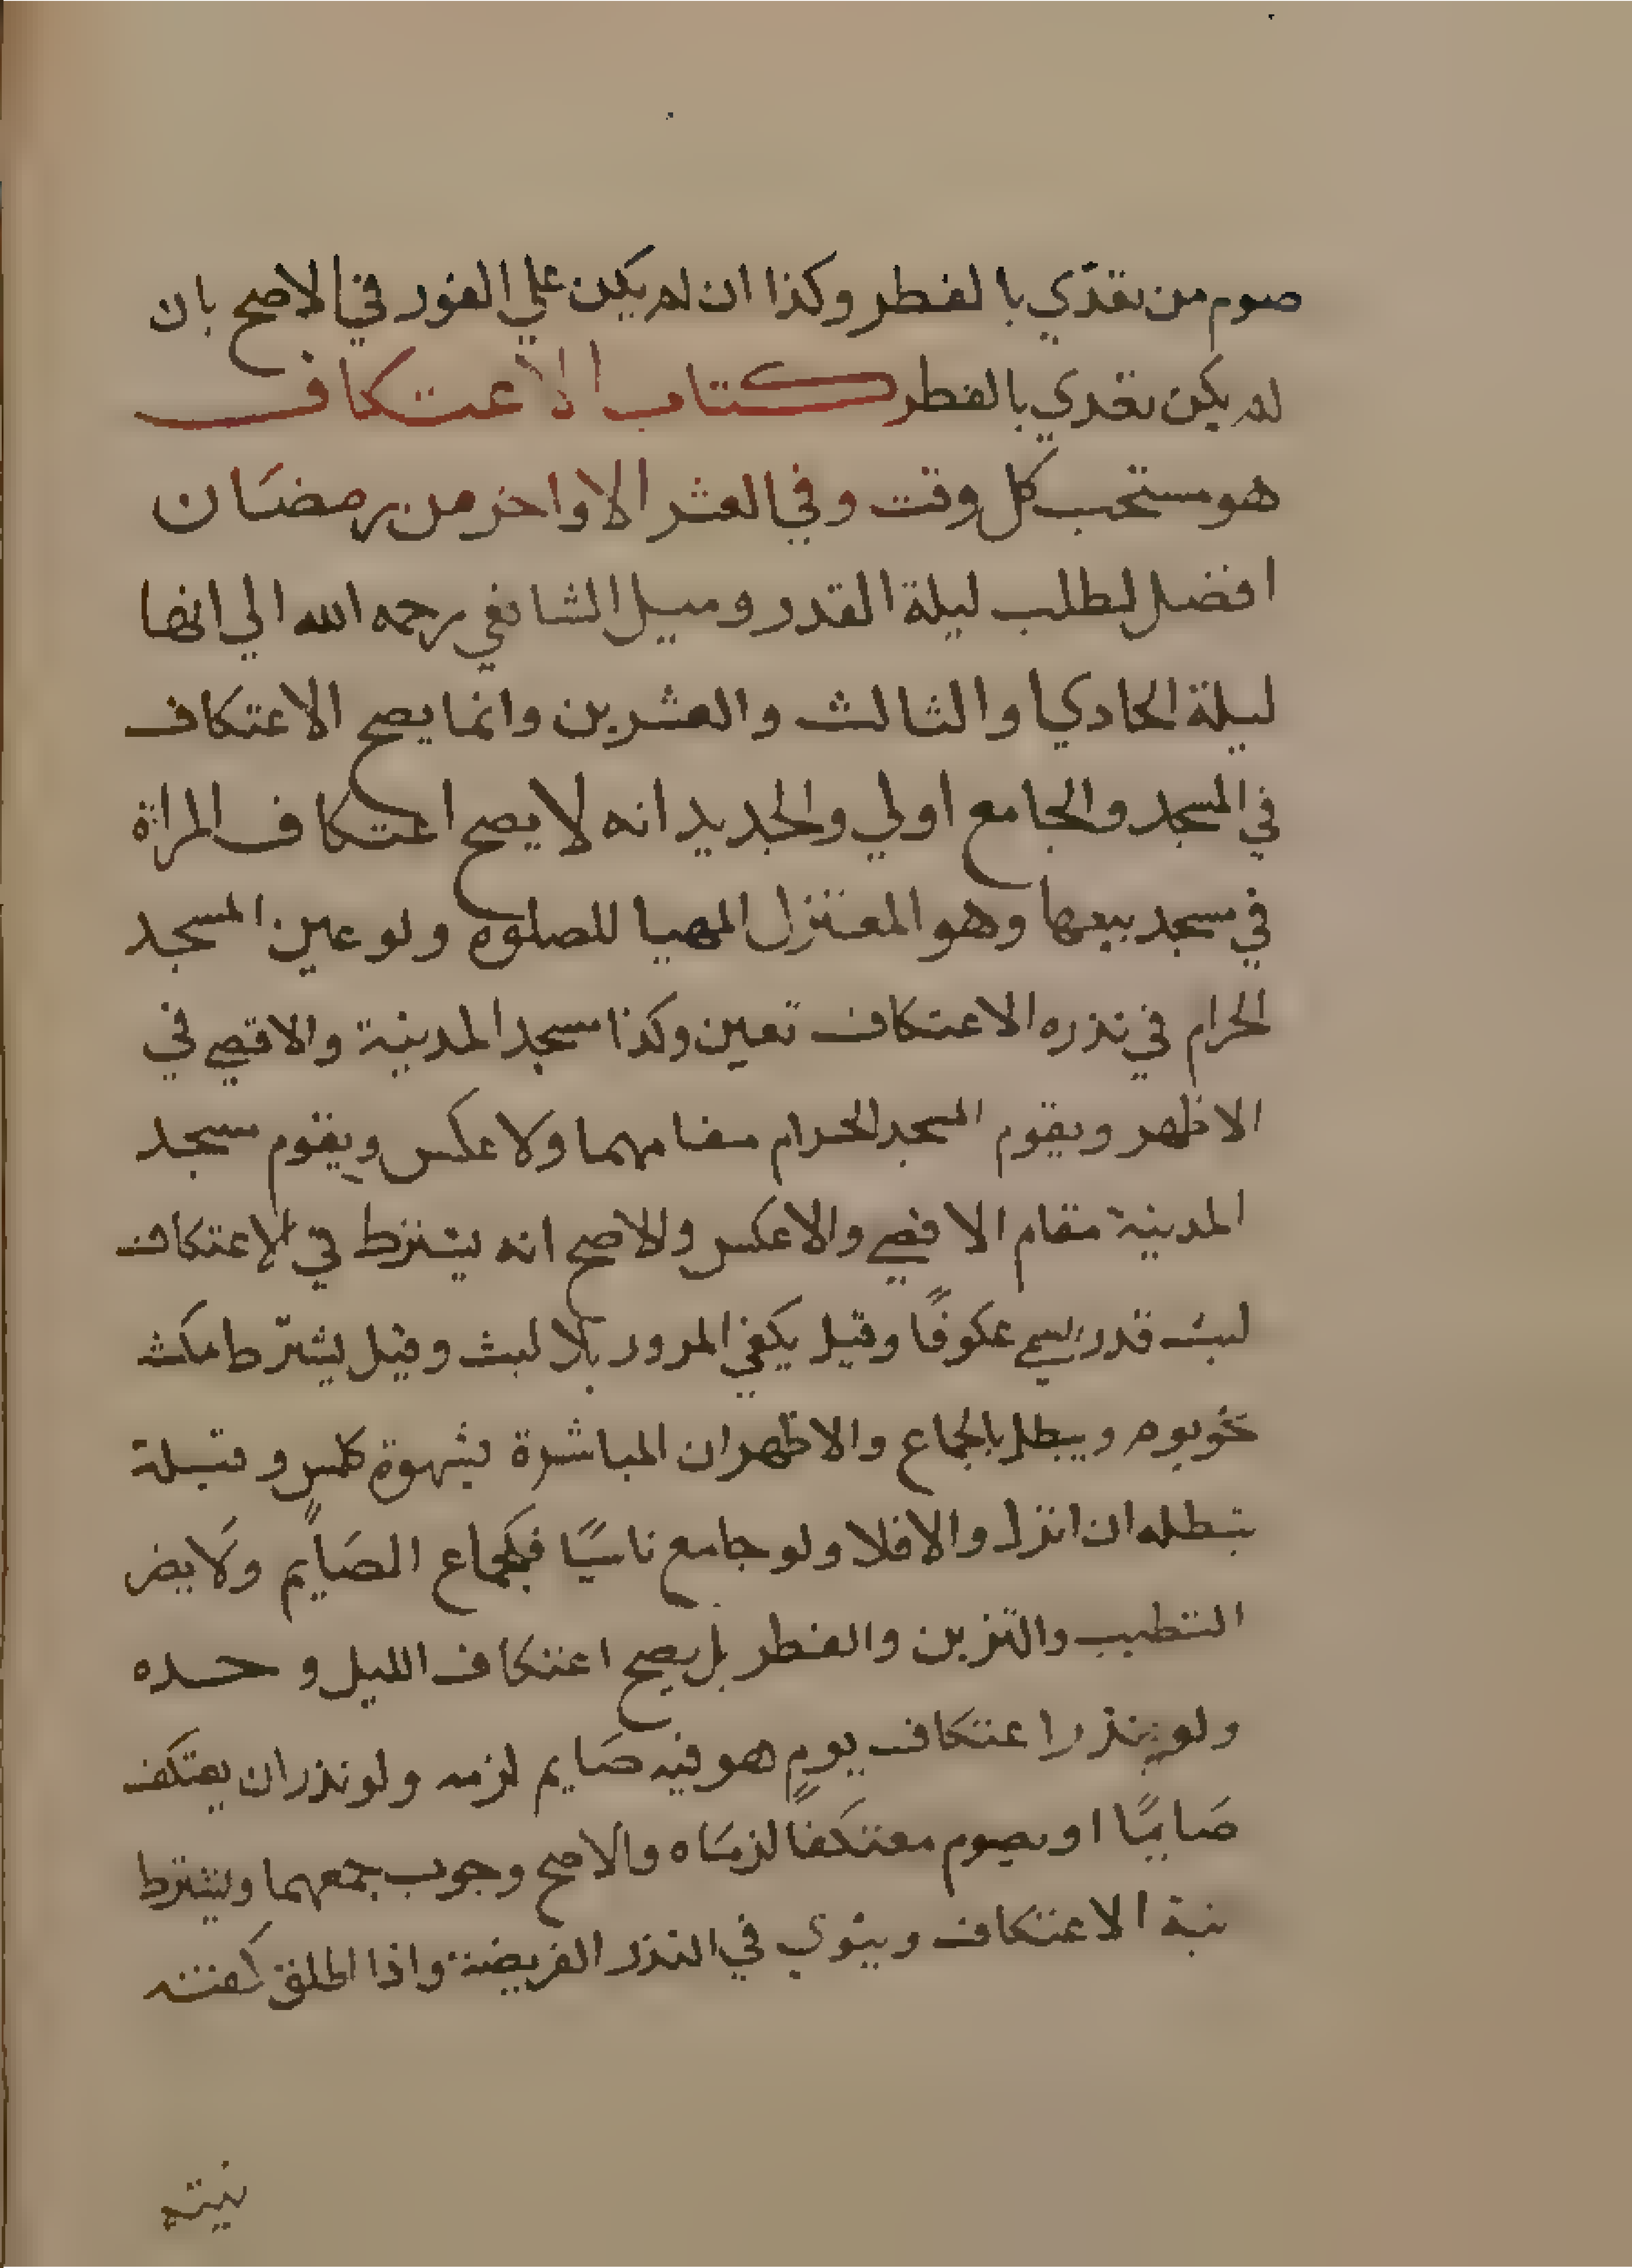 صوم من تعدّي بالفطر وكذا ان لم يكن علي الفور في الاصح بان
لم يكن تعدي بالفطر كتاب الاعتكاف
هو مستحب كل وقت وفي العشر الاواخر من رمضان
افضل لطلب ليلة القدر وميل الشافعي رحمه الله الي انها
ليلة الحادي او الثالث والعشرين وانما يصح الاعتكاف
في المسجد والجامع اولي والجديد انه لا يصح اعتكاف المراة
في مسجد بيتها وهو المعتزل المهيا للصلوة ولو عين المسجد
الحرام في نذره الاعتكاف تعين وكذا مسجد المدينة والاقصي في
الاظهر ويقوم المسجد الحرام مقامهما ولا عكس ويقوم مسجد
المدينة مقام الاقصي والاعكس والاصح انه يشترط في الاعتكاف
لبث قدر يسمي عكوفًا وقيل يكفي المرور بلا لبث وقيل يشترط مكث
نحو يوم ويبطل بالجماع والاظهر ان المباشرة بشهوة كلمس وقبلة
تبطله ان انزل والا فلا ولو جامع ناسيًا فكجماع الصَايم ولا يضر
التطيب والتزين والفطر بل يصح اعتكاف الليل وحده
ولو نذر اعتكاف يومٍ هو فيه صَايم لزمه ولو نذر ان يعتكف
صَايمًا او يصوم معتكفًا لزمَاه والاصح وجوب جمعهما ويشترط
نية الاعتكاف وينوي في النذر الفريضة واذا اطلق كفته
نيته